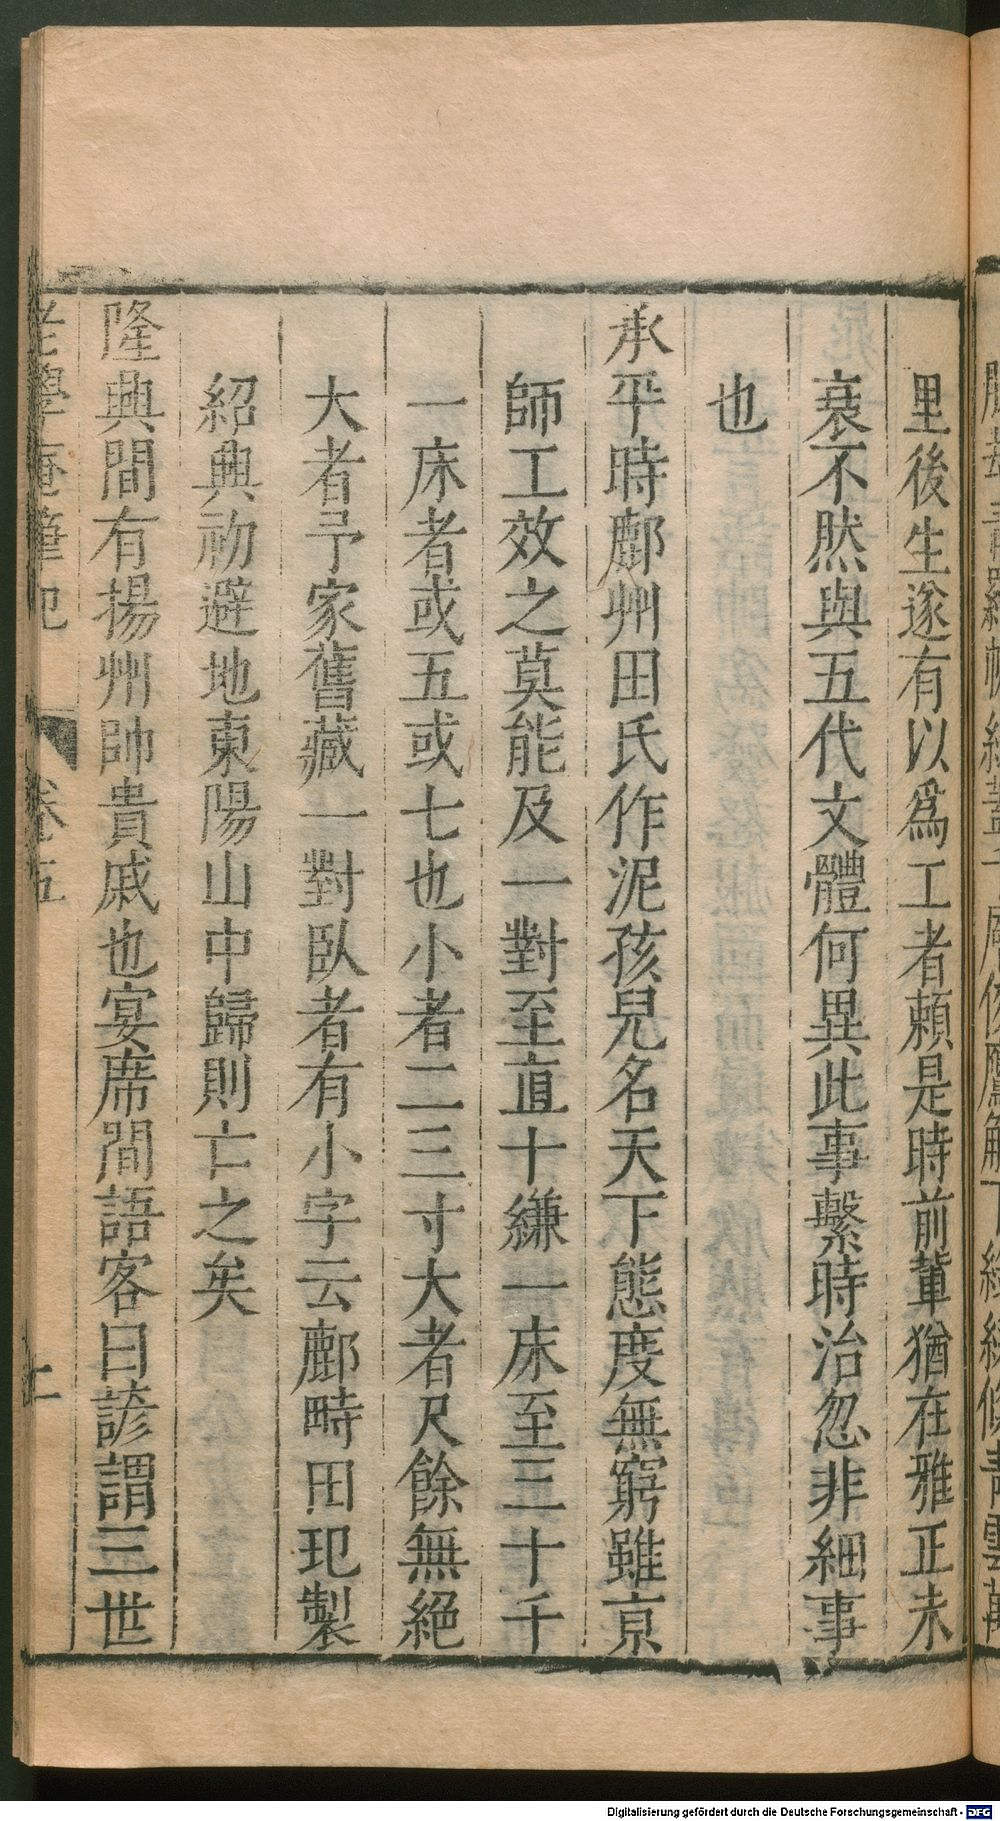 里後生遂有以爲工者賴是時前輩猶在雅正未
衰不然與五代文體何異此事繫時治忽非細事
也
承平時鄜州田氏作泥孩兒名天下態度無窮雖京
師工效之莫能及一對至直十縑一床至三十千
一床者或五或七也小者二三寸大者尺餘無絕
大者予家舊藏一對臥者有小字云鄜畤田玘製
紹興初避地東陽山中歸則亡之矣
隆興間有揚州帥貴戚也宴席間語客曰諺謂三世
老學庵筆記 卷五
Digitalisierung gefördert durch die Deutsche Forschungsgemeinschaft - DFG